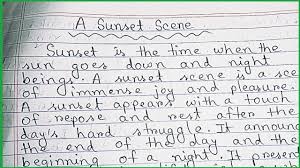 A Sunset Scene
Sunset is the time when the
sun goes down and night
beings. A sunset scene is a sce
of immense joy and pleasure.
A sunset appears with a touch
of repose and rest after the
day's hard struggle. It announ
the end of the day and the
beginning of a night. It present